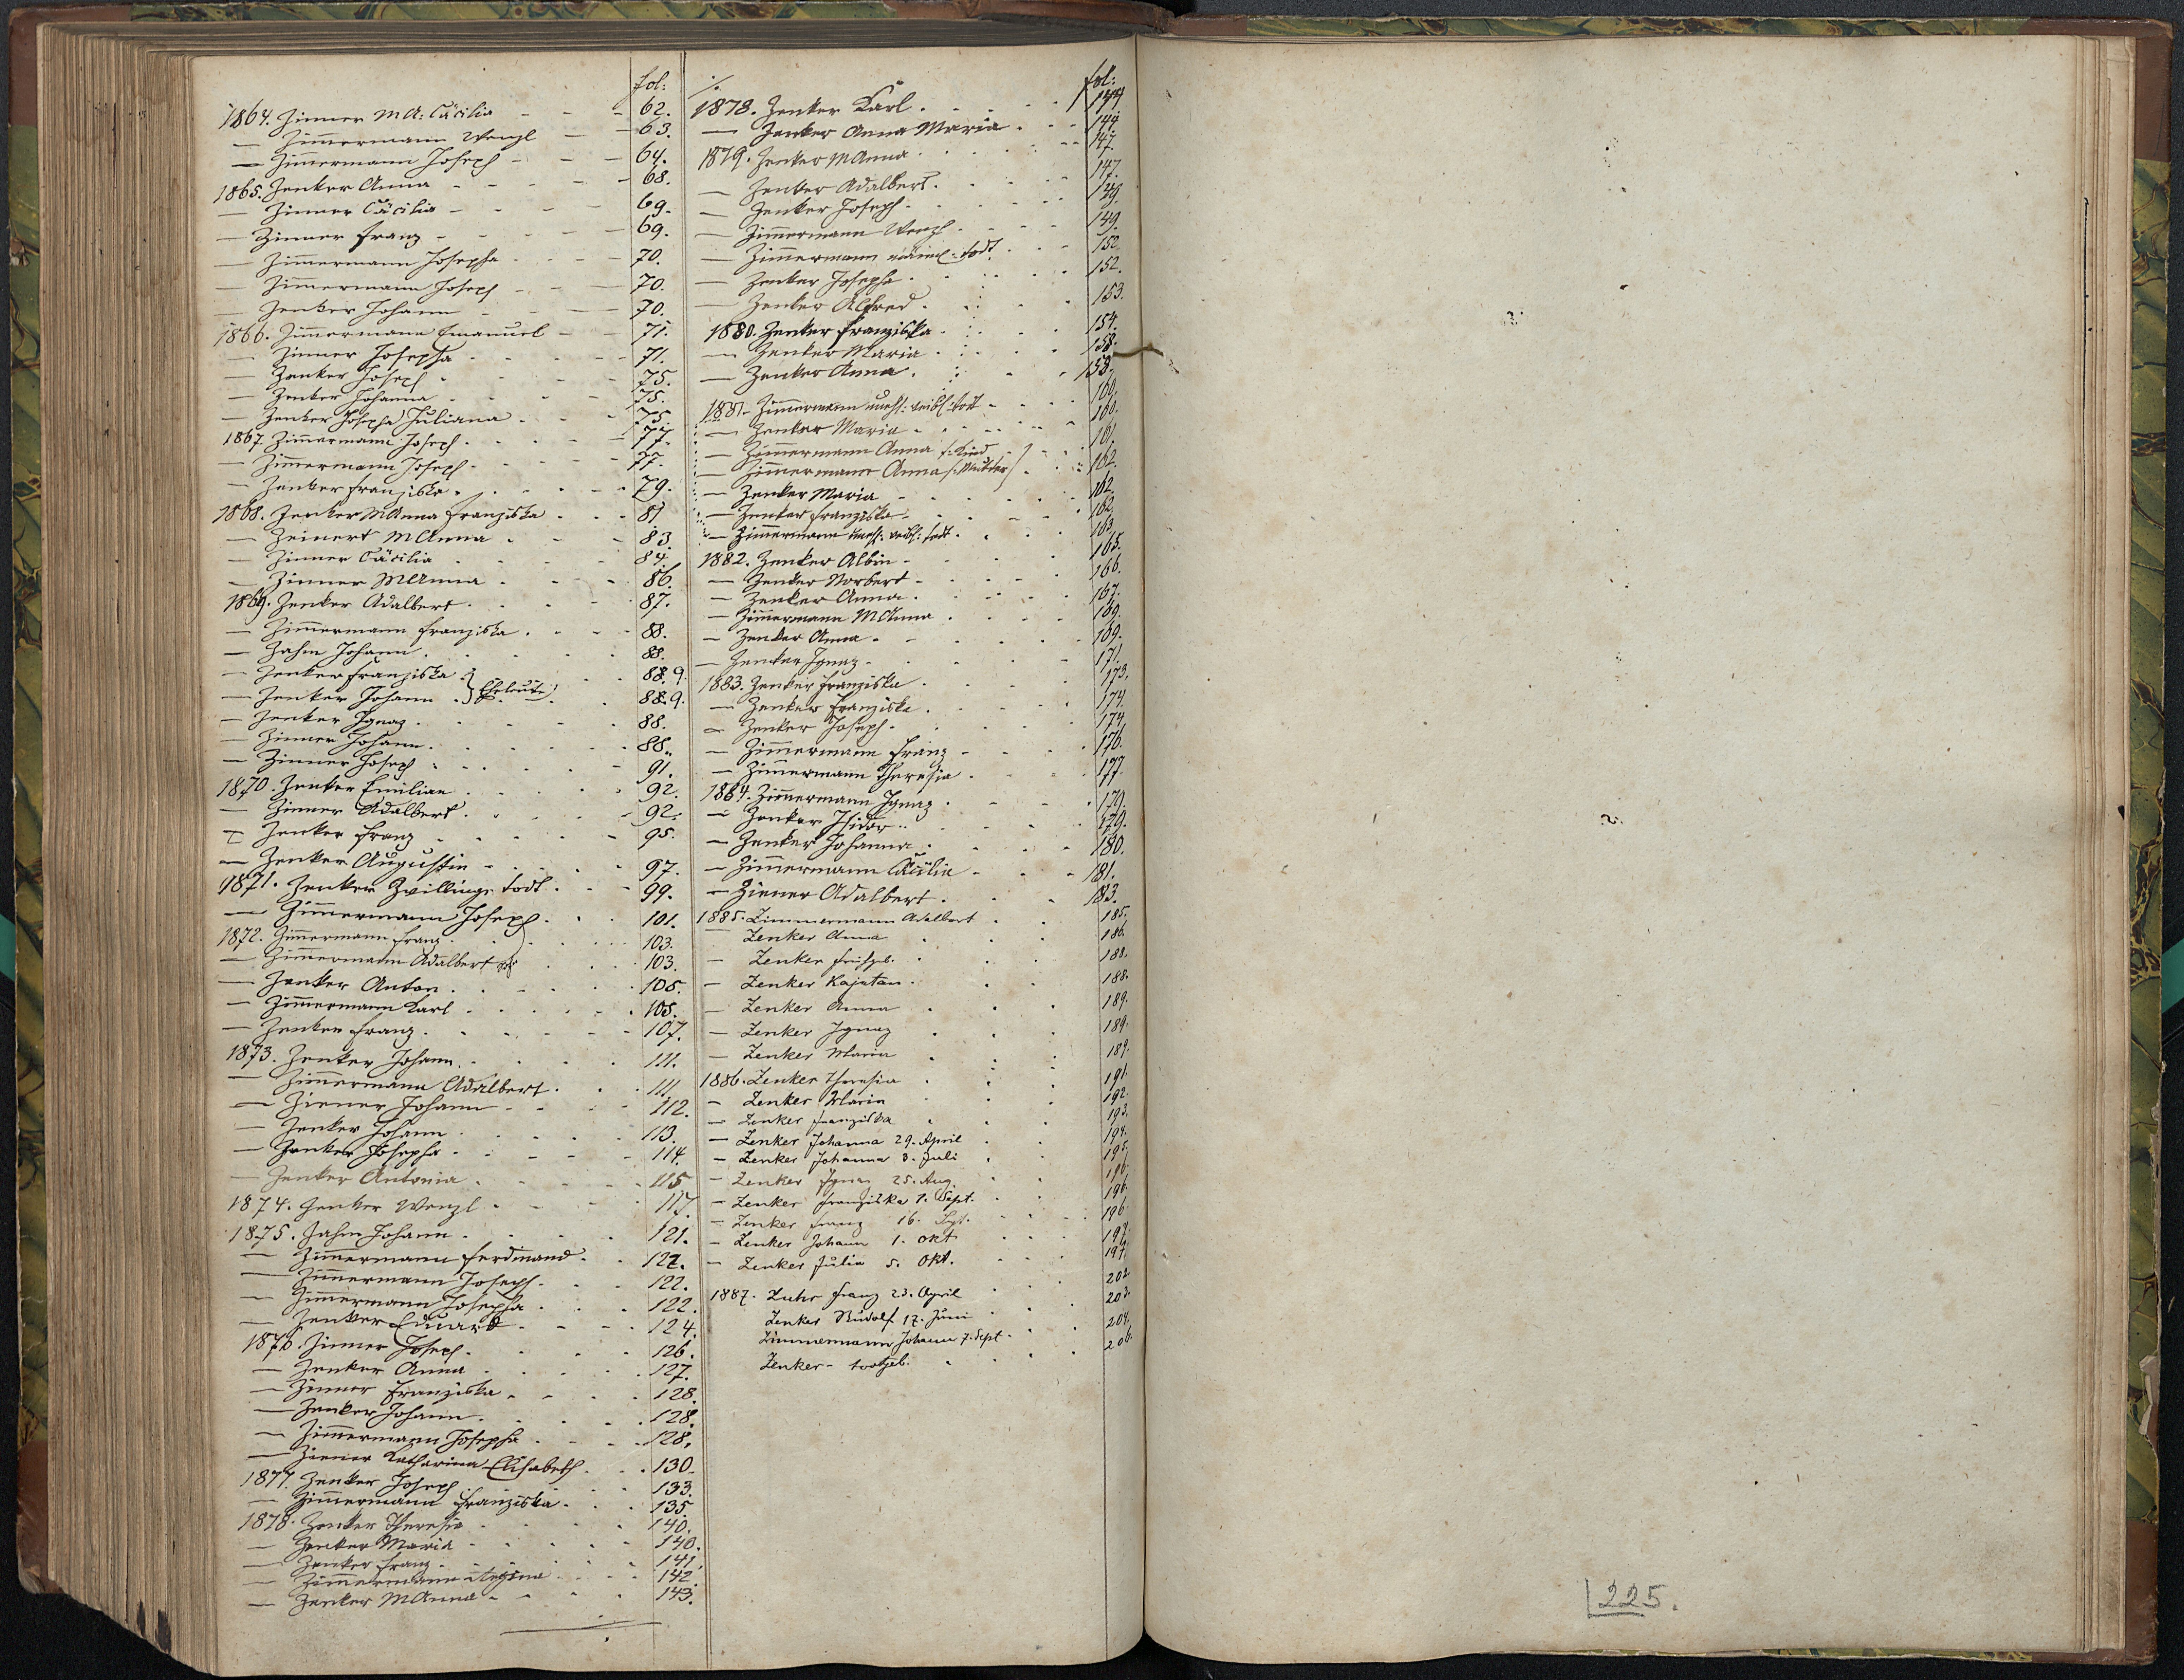 fol:
1864. Zinner MA: Cäcilia - - - 62.
— Zimmermann Wenzl - - 63.
— Zimmermann Joseph - - - 64.
1865. Zenker Anna - - - - - 68.
— Zinner Cäcilia - - - - 69.
— Zinner Franz - - - - - 69.
— Zimmermann Josepha - - - 70.
— Zimmermann Joseph - - - 70.
— Zenker Johann - - - 70.
1866. Zimmermann Emanuel - - 71.
— Zinner Josepha - - - - 71.
— Zenker Joseph - - - - 75.
— Zenker Johanna - - - - 75.
— Zenker Josepha Juliana - - - 75.
1867. Zimmermann Joseph - - - - 77.
— Zimmermann Joseph - - - - 77.
— Zenker Franziska - - - - 79.
1868. Zenker MAnna Franziska - - - 81
— Zeinert MAnna - - - - 83.
— Zinner Cäcilia - - - - 84.
— Zinner MAnna - - - - 86.
1869. Zenker Adalbert - - - - 87.
— Zimmermann Franziska - - - 88.
— Zahn Johann - - - - 88.
— Zenker Franziska } - - - 88.9.
— Zenker Johann } Eheleute - - 88.9.
— Zenker Ignaz - - - - 88.
— Zinner Johann - - - - 88.
— Zinner Joseph - - - - 91.
1870. Zenker Emilian - - - - 92.
— Zinner Adalbert - - - - 92.
— Zenker Franz - - - - 95.
— Zenker Augustin - - - - 97.
1871. Zenker Zwillinge todt - - - 99.
— Zimmermann Joseph - - - 101.
1872. Zimmermann Franz - - - 103.
— Zimmermann Adalbert - - - 103.
— Zenker Anton - - - - 105.
— Zimmermann Karl - - - - 105.
— Zenker Franz - - - - 107.
1873. Zenker Johann - - - - 111.
— Zimmermann Adalbert - - - 111.
— Ziener Johann - - - - 112.
— Zenker Johann - - - - 113.
— Zenker Josepha - - - - 114.
— Zenker Antonia - - - - 115
1874. Zenker Wenzl - - - - 117.
1875. Zahn Johann - - - - 121.
— Zimmermann Ferdinand - - 122.
— Zimmermann Joseph - - - 122.
— Zimmermann Josepha - - - 122.
— Zenker Eduard - - - - 124.
1876. Zinner Joseph - - - - 126.
— Zenker Anna - - - - 127.
— Zinner Franziska - - - - 128.
— Zenker Johann - - - - 128.
— Zimmermann Josepha - - - 128.
— Ziener Katharina Elisabeth - - 130.
1877. Zenker Joseph - - - - 133.
— Zimmermann Franziska - - - 135.
1878. Zenker Theresia - - - - 140.
— Zenker Maria - - - - 140.
— Zenker Franz - - - - 141.
— Zimmermann Regina - - - 142.
— Zenker MAnna - - - - 143.
fol:
1878. Zenker Karl - - - - 144.
— Zenker Anna Maria - - - 144.
1879. Zenker MAnna - - - - 147.
— Zenker Adalbert - - - - 147.
— Zenker Joseph - - - - 149.
— Zimmermann Wenzl - - - 149.
— Zimmermann todt - - - 152.
— Zenker Josepha - - - - 152.
— Zenker Alfred - - - - 153.
1880. Zenker Franziska - - - 154.
— Zenker Maria - - - - 158.
— Zenker Anna - - - - 158.
1881. Zimmermann unehl: weibl: todt - - - 160.
— Zenker Maria - - - - 160.
— Zimmermann Anna /: Kind - - 161.
— Zimmermann Anna /: Mutter - - 162.
— Zenker Maria - - - - 162.
— Zenker Franziska - - - - 162.
— Zimmermann unehl: weibl: todt - - 163.
1882. Zenker Albin - - - - 165.
— Zenker Norbert - - - - 166.
— Zenker Anna - - - - 167.
— Zimmermann MAnna - - - 169.
— Zenker Anna - - - - 169.
— Zenker Ignaz - - - - 171.
1883. Zenker Franziska - - - - 173.
— Zenker Franziska - - - - 174.
— Zenker Joseph - - - - 174.
— Zimmermann Franz - - - 176.
— Zimmermann Theresia - - - 177.
1884. Zimmermann Ignaz - - - 179.
— Zenker Isidor - - - - 179.
— Zenker Johanna - - - - 180.
— Zimmermann Cäcilia - - - 181.
— Ziener Adalbert - - - - 183.
1885. Zimmermann Adalbert - - 185.
— Zenker Anna - - - 186.
— Zenker - - - 188.
— Zenker Kajetan - - - 188.
— Zenker Anna - - - 189.
— Zenker Ignaz - - - 189.
— Zenker Maria - - - 189.
1886. Zenker Theresia - - - 191.
— Zenker Maria - - - 192.
— Zenker Franziska - - - 193.
— Zenker Johanna 29. April - - 194.
— Zenker Johanna 3. Juli - - 195.
— Zenker Ignaz 25. Aug. - - 196.
— Zenker Franziska 1. Sept. - - 196.
— Zenker Franz 16. Sept. - - 196.
— Zenker Johann 1. Okt. - - 197.
— Zenker Julia 5. Okt. - - 197.
1887. Zuhr Franz 23. April - - 202.
Zenker Rudolf 17. Juni - - 203.
Zimmermann Johann 7. Sept - - 204.
Zenker - todtgeb. - - - 206.
225.